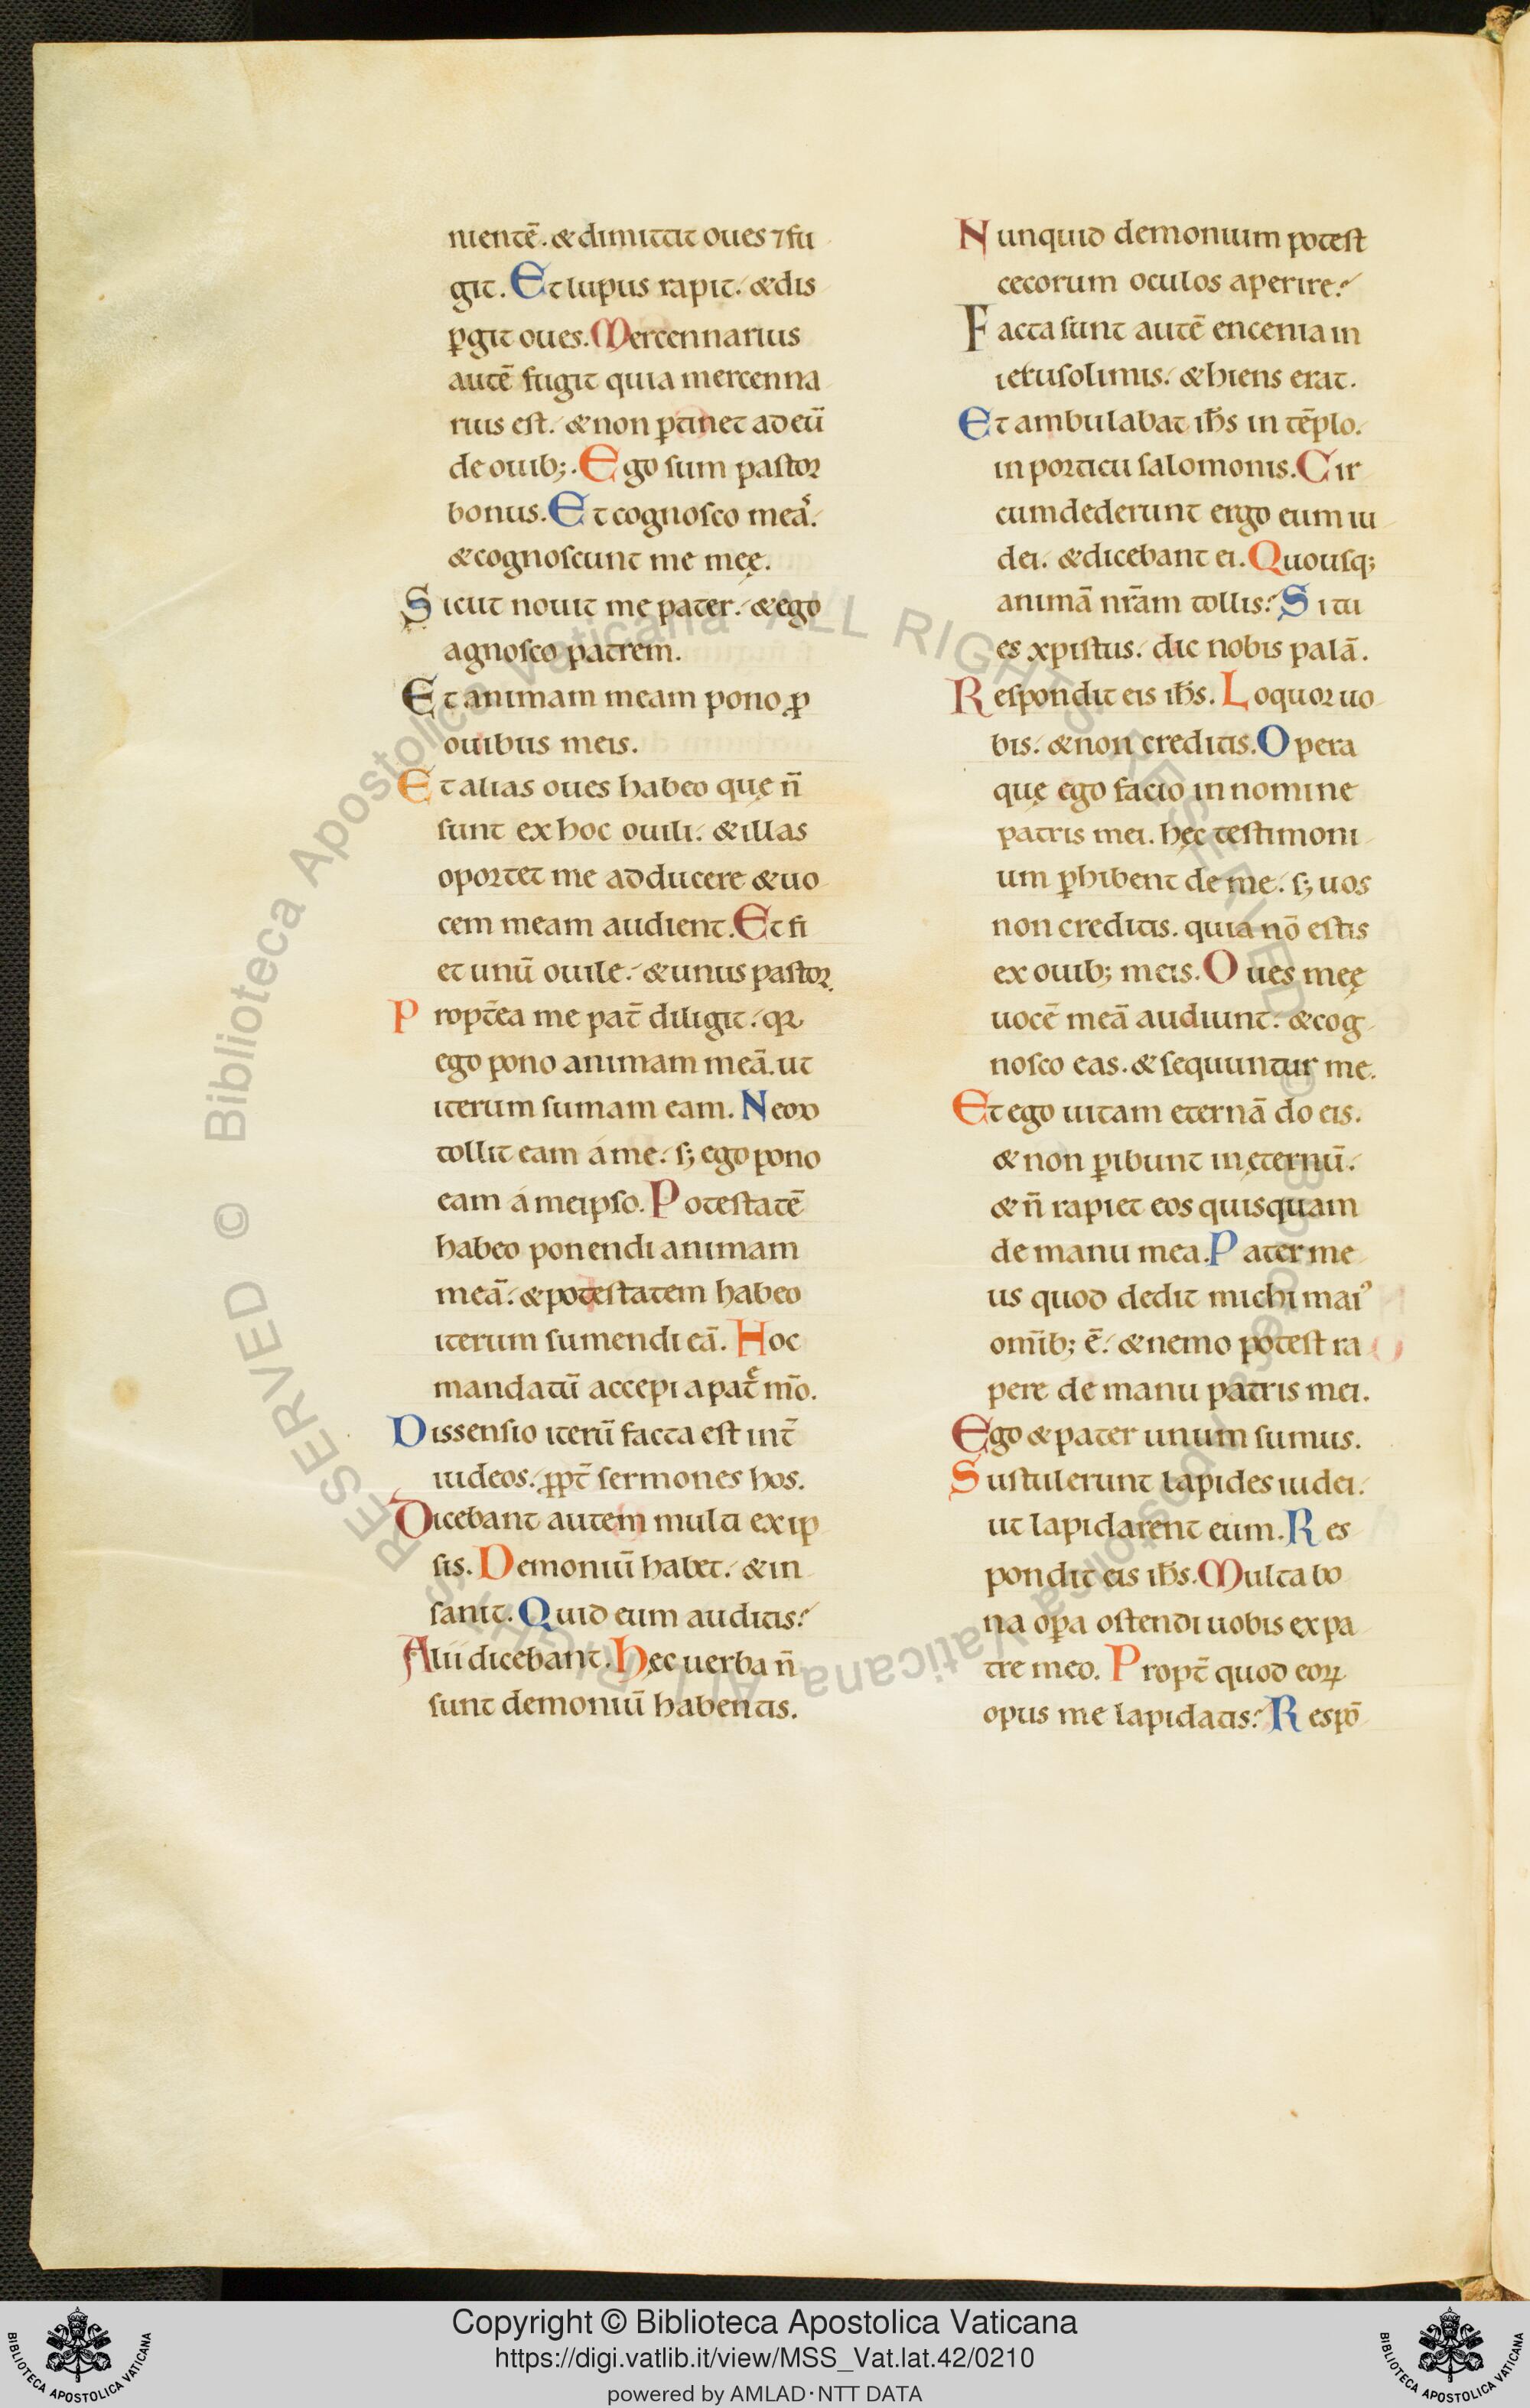 nientē. & dimittit oues ⁊ fu
git. Et lupus rapit. & dis
ꝑgit oues. Mercennarius
autē fugit quia mercenna
rius est. & non ꝑtinet ad eū
de ouib;. Ego sum pastor
bonus. Et cognosco meaˢ.
& cognoscunt me meę.
Sicut nouit me pater. & ego
agnosco patrem.
Et animam meam pono ꝓ
ouibus meis.
Et alias oues habeo quę n̄
sunt ex hoc ouili. & illas
oportet me adducere & uo
cem meam audient. Et fi
et unū ouile. & unus pastor.
Propt̄ea me pat̄ diligit. qꝛ
ego pono animam meā. ut
iterum sumam eam. Nemo
tollit eam á me. s; ego pono
eam á meipso. Potestatē
habeo ponendi animam
meā. & potestatem habeo
iterum sumendi eā. Hoc
mandatū accepi a pat̄ᵉ m̄o.
Dissensio iterū facta est int̄
iudeos. ꝓpt̄ sermones hos.
Dicebant autem multi ex ip
sis. Demoniū habet. & in
sanit. Quid eum auditis?
Alii dicebant. Hęc uerba n̄
sunt demoniū habentis.
Nunquid demonium potest
cecorum oculos aperire?
Facta sunt autē encenia in
ierusolimis. & hiens erat.
Et ambulabat ih̄s in tēplo.
in porticu salomonis. Cir
cumdederunt ergo eum iu
dei. & dicebant ei. Quousq;
animā nr̄am tollis? Si tu
es xpistus. dic nobis palā.
Respondit eis ih̄s. Loquor uo
bis. & non creditis. Opera
quę ego facio in nomine
patris mei. hęc testimoni
um ꝑhibent de me. s; uos
non creditis. quia nō estis
ex ouib; meis. Oues meę
uocē meā audiunt. & cog
nosco eas. & sequuntur me.
Et ego uitam eternā do eis.
& non ꝑibunt in ęternū.
& n̄ rapiet eos quisquam
de manu mea. Pater me
us quod dedit michi maiꝰ
omīb; ē. & nemo potest ra
pere de manu patris mei.
Ego & pater unum sumus.
Sustulerunt lapides iudei.
ut lapidarent eum. Res
pondit eis ih̄s. Multa bo
na oꝑa ostendi uobis ex pa
tre meo. Propt̄ quod eoꝝ
opus me lapidatis? Respō
© Biblioteca Apostolica Vaticana ALL RIGHTS RESERVED © Biblioteca Apostolica Vaticana ALL RIGHTS RESERVED
Copyright © Biblioteca Apostolica Vaticana
https://digi.vatlib.it/view/MSS_Vat.lat.42/0210
powered by AMLAD·NTT DATA
BIBLIOTECA APOSTOLICA VATICANA
BIBLIOTECA APOSTOLICA VATICANA